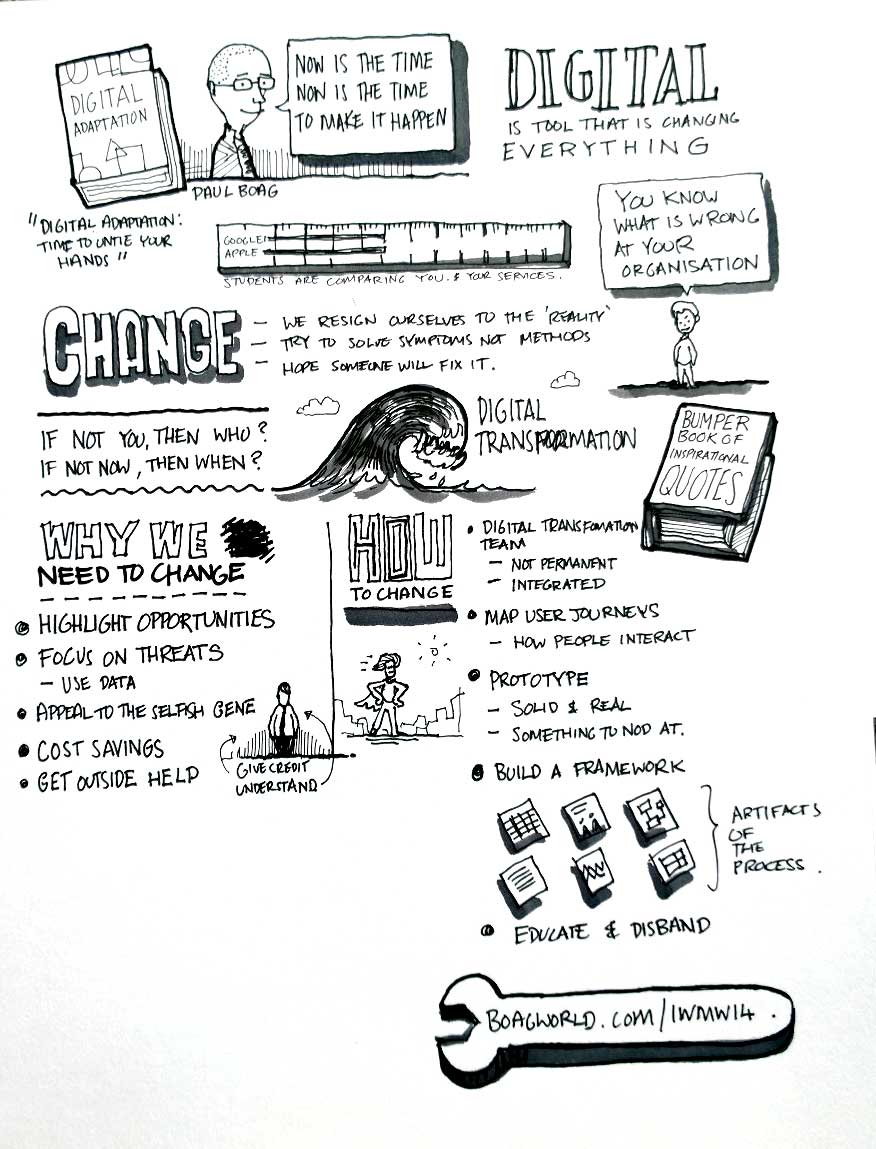 DIGITAL
ADAPTATION
NOW IS THE TIME
NON IS THE TIME
TO MAKE IT HAPPEN
PAUL BOAG
DIGITAL
IS TOOL THAT IS CHANGING
EVERYTHING
"DIGITAL ADAPTATION:
TIME TO UNTIE YOUR
HANDS"
GOOGLE
APPLE
STUDENTS ARE COMPARING YOU & YOUR SERVICES.
YOU KNOW
WHAT IS WRONG
AT YOUR
ORGANISATION
CHANGE
– WE RESIGN OURSELVES TO THE 'REALITY'
– TRY TO SOLVE SYMPTOMS NOT METHODS
– HOPE SOMEONE WILL FIX IT.
IF NOT YOU, THEN WHO?
IF NOT NOW, THEN WHEN?
DIGITAL
TRANSFORMATION
BUMPER
BOOK OF
INSPIRATIONAL
QUOTES
WHY WE
NEED TO CHANGE
• HIGHLIGHT OPPORTUNITIES
• FOCUS ON THREATS
– USE DATA
• APPEAL TO THE SELFISH GENE
• COST SAVINGS
• GET OUTSIDE HELP
GIVE CREDIT
UNDERSTAND
HOW
TO CHANGE
• DIGITAL TRANSFOMATION
TEAM
– NOT PERMANENT
– INTEGRATED
• MAP USER JOURNEYS
– HOW PEOPLE INTERACT
• PROTOTYPE
– SOLID & REAL
– SOMETHING TO NOD AT.
• BUILD A FRAMEWORK
ARTIFACTS
OF
THE
PROCESS.
• EDUCATE & DISBAND
BOAGWORLD.COM/IWMW14.